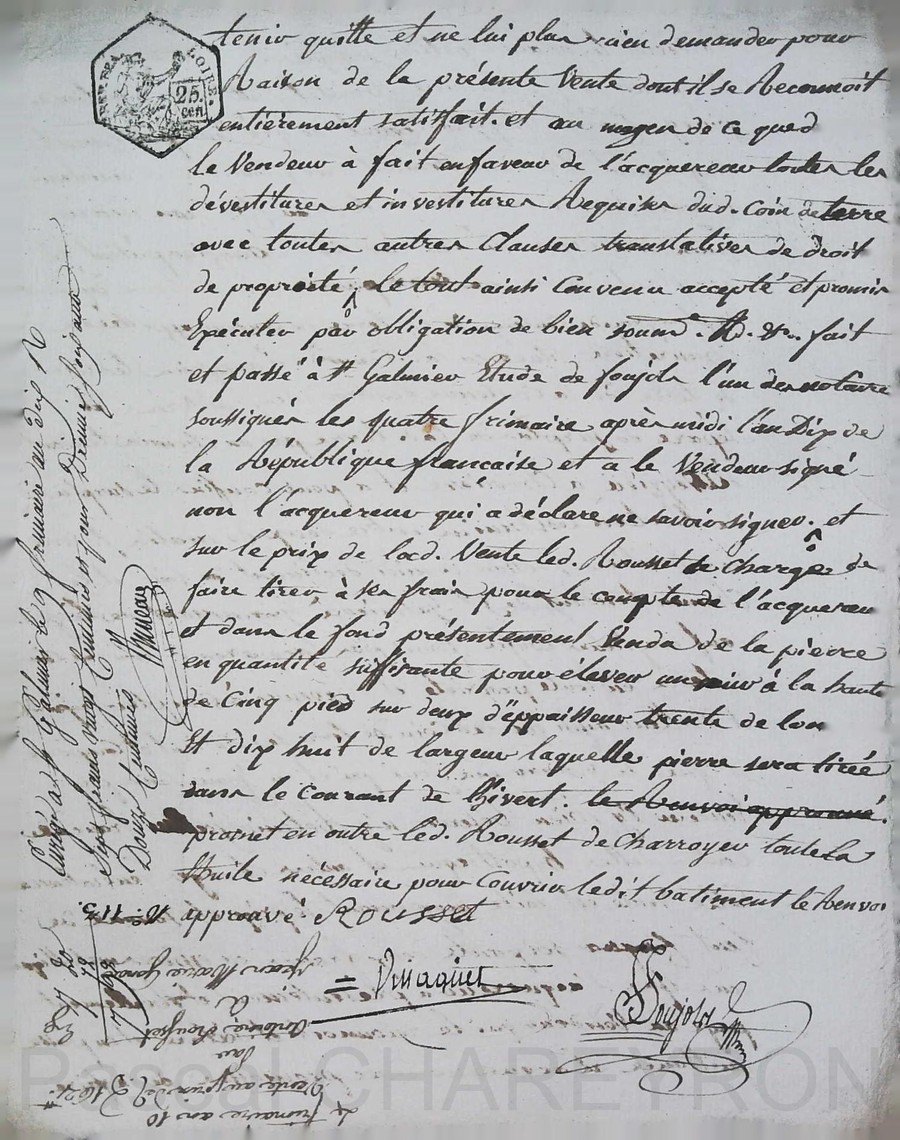 tenir quitte et ne lui plus rien demander pour
Raison de la présente Vente dont il se Reconnoit
entièrement satisfait. et au moyen de ce que d
le Vendeur à fait en faveur de l'acquereur toutes les
dévestitures et investitures Requises dud. Coin de terre
avec toutes autres Clauses translatives de droit
de propriété, le tout ainsi Convenu accepté et promis
Exécuter par obligation de bien soums. R. &a. fait
et passé à St Galmier Etude de foujols l'un des notaires
soussignés les quatre frimaire après midi l'an Dix de
la République française et a le Vendeur signé
non l'acquereur qui a déclaré ne savoir signer. et
sur le prix de lad. Vente led. Rousset se charge de
faire tirer à ses frais pour le compte de l'acquereur
et dans le fond présentement Vendu de la pierre
en quantité suffisante pour élever un mur à la haute
de Cinq pied sur deux d'éppaisseur trente de lon
Et dix huit de largeur laquelle pierre sera tirée
dans le Courant de l'hivert. le Renvoi approuvé.
promet en outre led. Rousset de Charroyer toute la
thuile nécessaire pour Couvrir ledit batiment le Renvoi
approuvé. ROUSSET
Foujols
à St Galmier le 9 frimaire an dix R
sept francs
Douze Centimes
N.° 113.
4 frimaire an 10
Vente
par
Antoine Rousset
A
Jean Marie
BEL REP
LOIRE.
25.
cen.
Pascal CHAREYRON